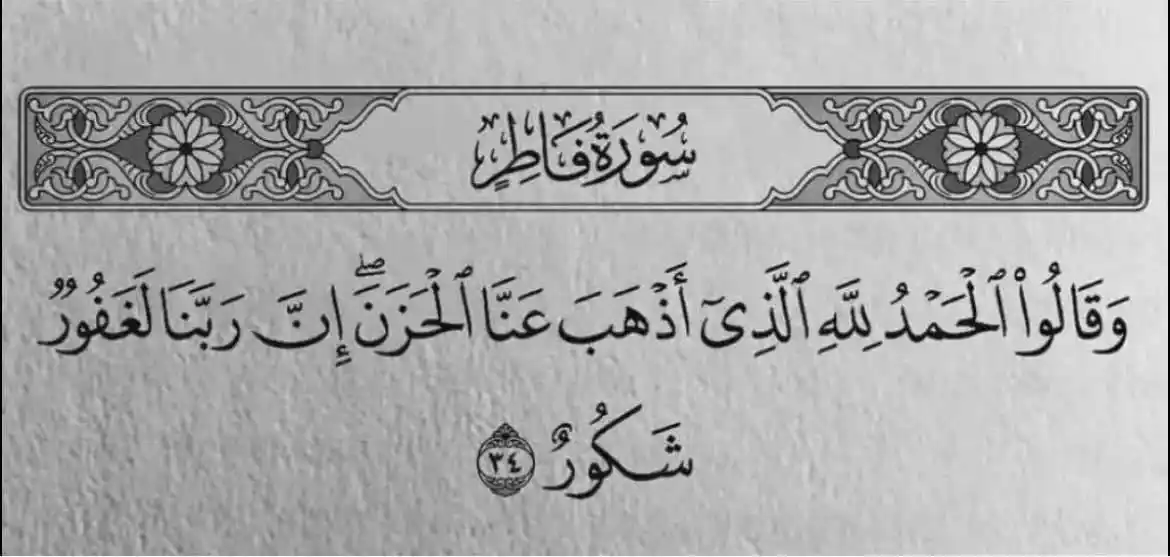 سُورَةُ فَاطِرٍ
وَقَالُوا۟ ٱلْحَمْدُ لِلَّهِ ٱلَّذِىٓ أَذْهَبَ عَنَّا ٱلْحَزَنَ ۖ إِنَّ رَبَّنَا لَغَفُورٌ
شَكُورٌ ٣٤